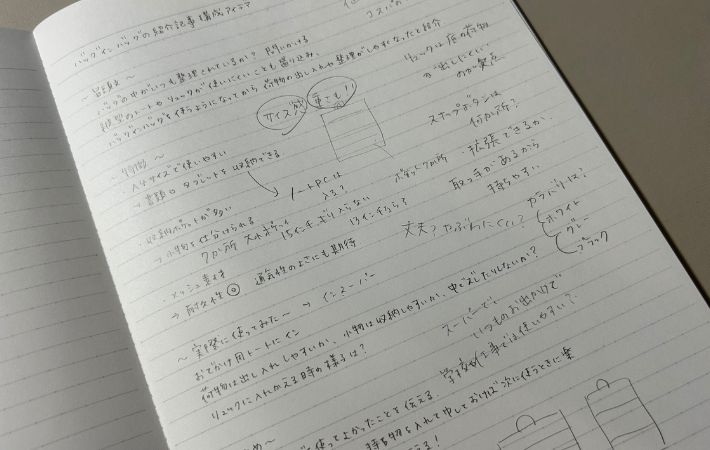 バッグインバッグの紹介記事 構成アイデア
コスパの
〜冒頭文〜
バッグの中がいつも整理されているか？ 問いかける
縦型のトートやリュックが使いにくいことも盛り込み、
バッグインバッグを使うようになってから荷物の出し入れや整理がしやすくなったと紹介
リュックは底の荷物
が出しにくい
のが欠点
サイズ感
重さも！！
スナップボタンは
何か所？
〜特徴〜
・A4サイズで使いやすい
→書類やタブレットを収納できる
ノートPCは
入る？
15インチギリ入らない
13インチなら？
・収納ポケットが多い
→小物を仕分けられる
7か所
ポケット7か所
・拡張できるか、
取っ手があるから
持ちやすい
・メッシュ素材
→耐久性◎
通気性のよさにも期待
丈夫？やぶれにくい？
カラバリは？
ホワイト
グレー
ブラック
〜実際に使ってみた〜
おでかけ用トートにイン
荷物は出し入れしやすいか、小物は収納しやすいか、中でズレたりしないか？
リュックに入れかえる時の様子は？
スーパーで、
いつものお出かけで
学校や仕事では使いやすい？
め〜
使ってよかったことを伝える
持ち物を入れて
おけば次に使うときに楽
える！